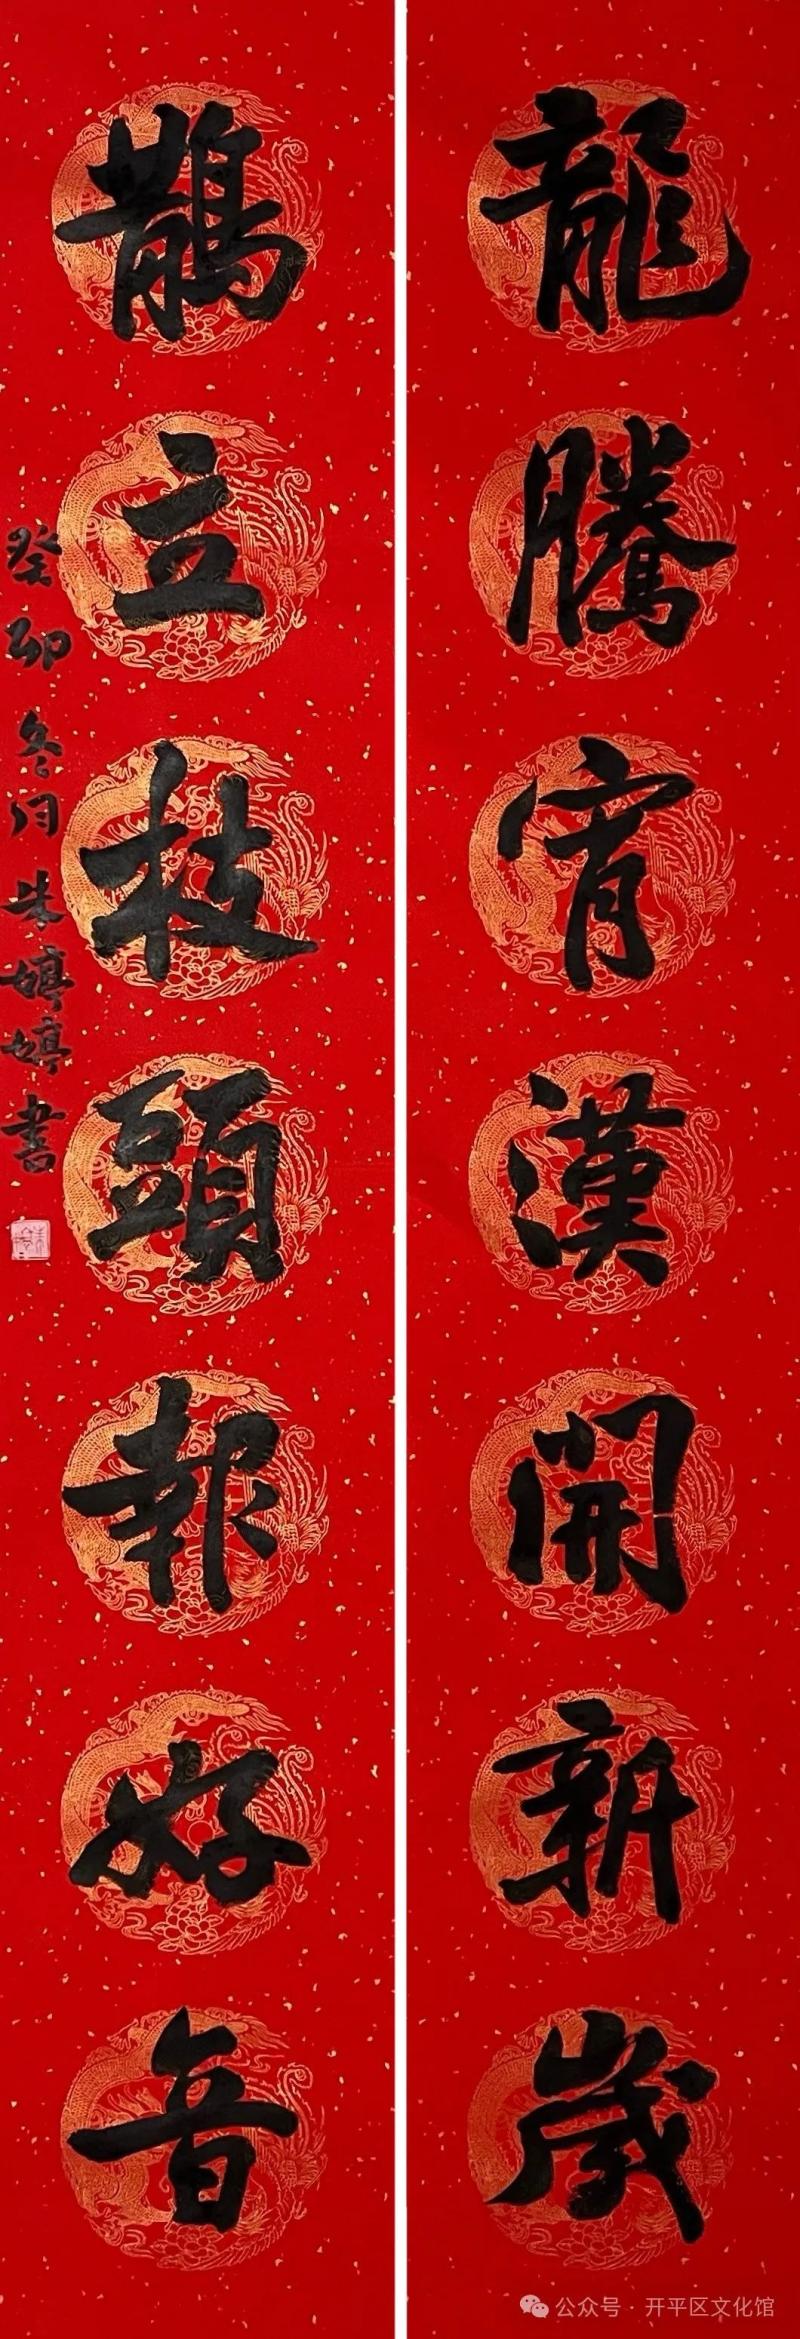 龍騰宵漢開新歲
鵲立枝頭報好音
癸卯冬月朱婷婷書
公众号·开平区文化馆